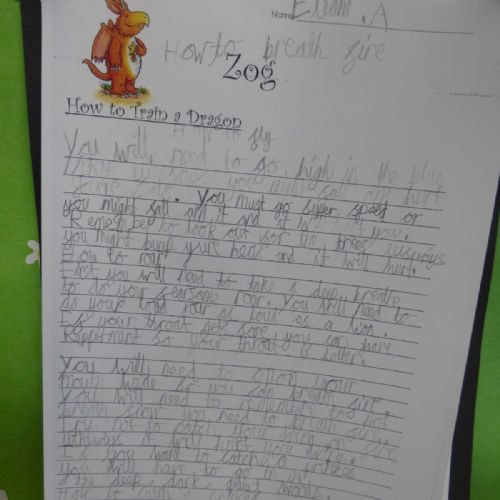 Name Ethan .A
How to breath fire
Zog
How to Train a Dragon
How to fly
You will need to go high in the blue
sky you might fall and hurt
you might fall. You must go super speed or
you might fall and it and it will hurt you.
Remember to look out for the trees
you might bump yure head and it will hurt.
How to roar
First you will need to take a deep breathe
to do your fearsome roar. You will need to
do your loud roar as loud as a lion.
If your throat gets sore you can have
Pepperment so your throat is better.
You will need to open your
mouth wide so you can breath fire.
You will need to remember to not
breath you need to breath
Try not to catch your wing on fire
it will hurt your
If you want to catch a princess
you will have to go in
the deep dark woods.
How to catch a princess